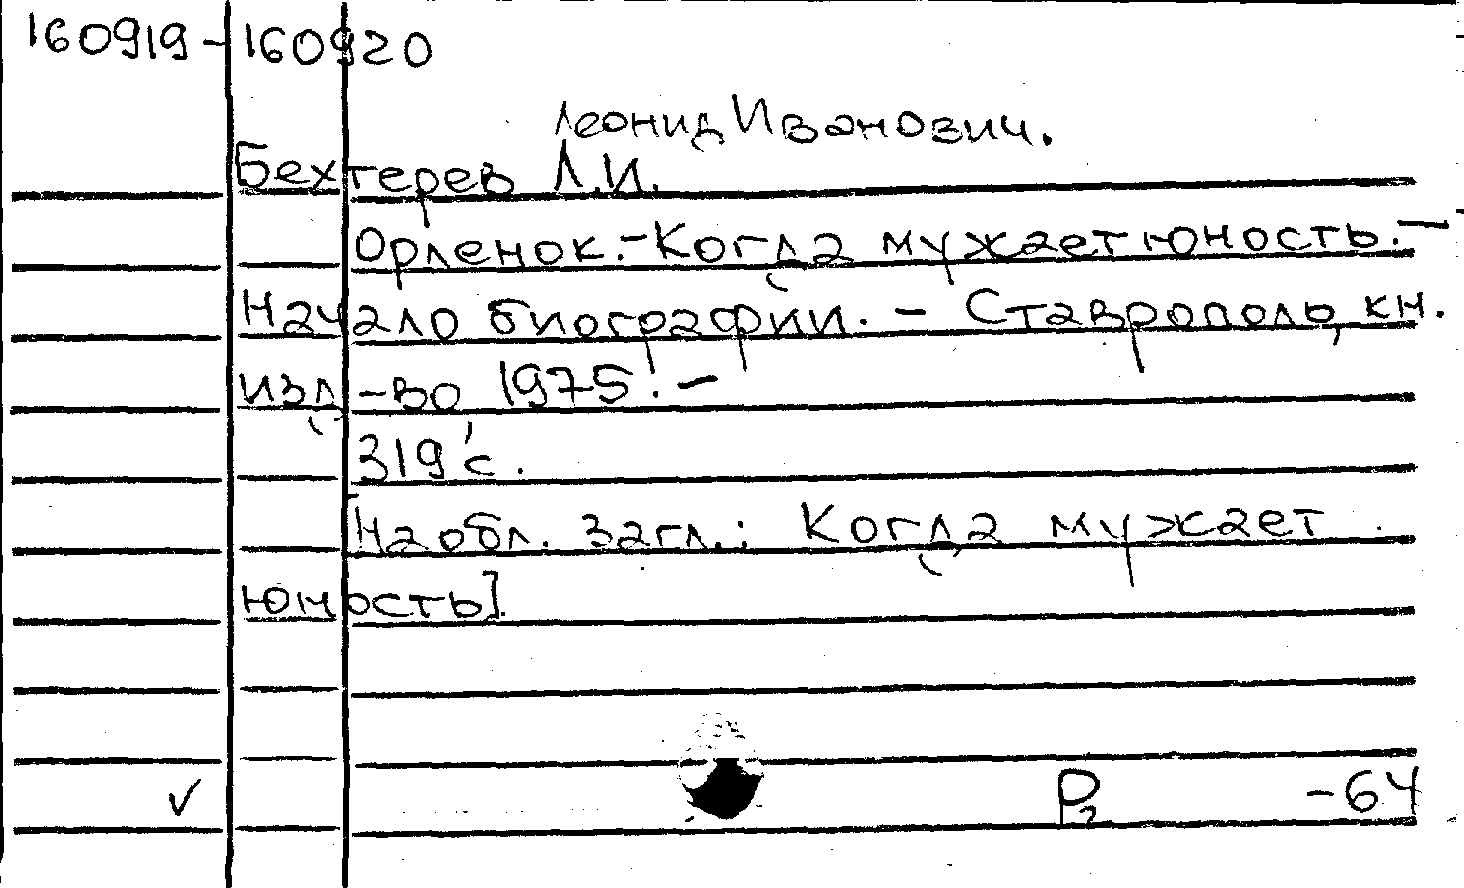 160919-160920
Леонид Иванович.
Бехтерев Л.И.
Орленок.-Когда мужает юность.-
Начало биографии. - Ставрополь, кн.
изд-во 1975. -
319 с.
[На обл. загл.: Когда мужает
юность].
Р2 -64